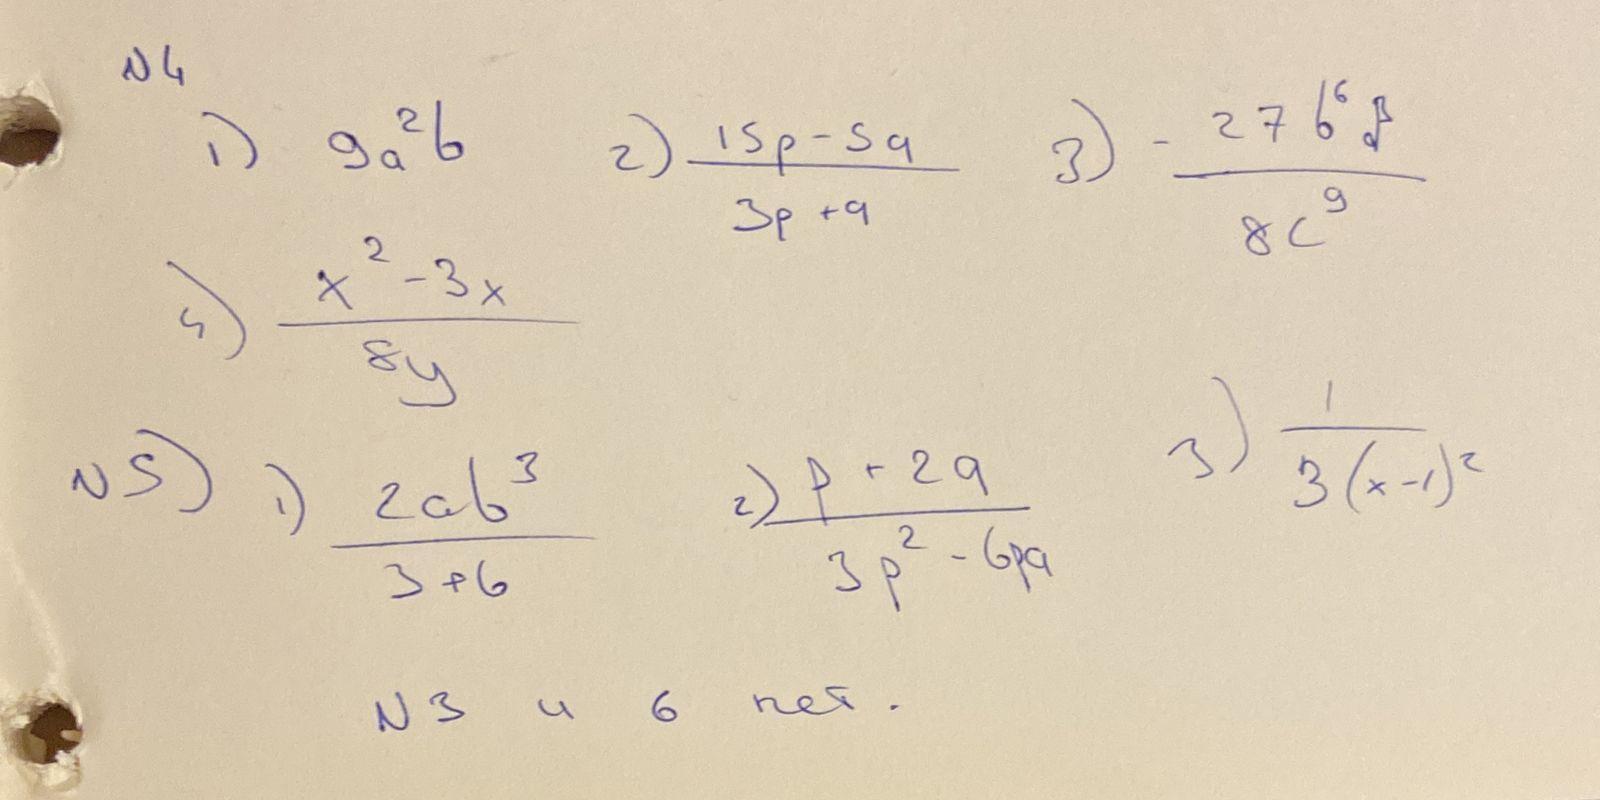 N4
1) 9a²b 2) (15p-5q)/(3p+q) 3) - 27b⁶/8c⁹
4) (x²-3x)/8y
N5) 1) 2ab³/(3+b) 2) (p+2q)/(3p²-6pq) 3) 1/(3(x-1)²)
N3 и 6 нет.